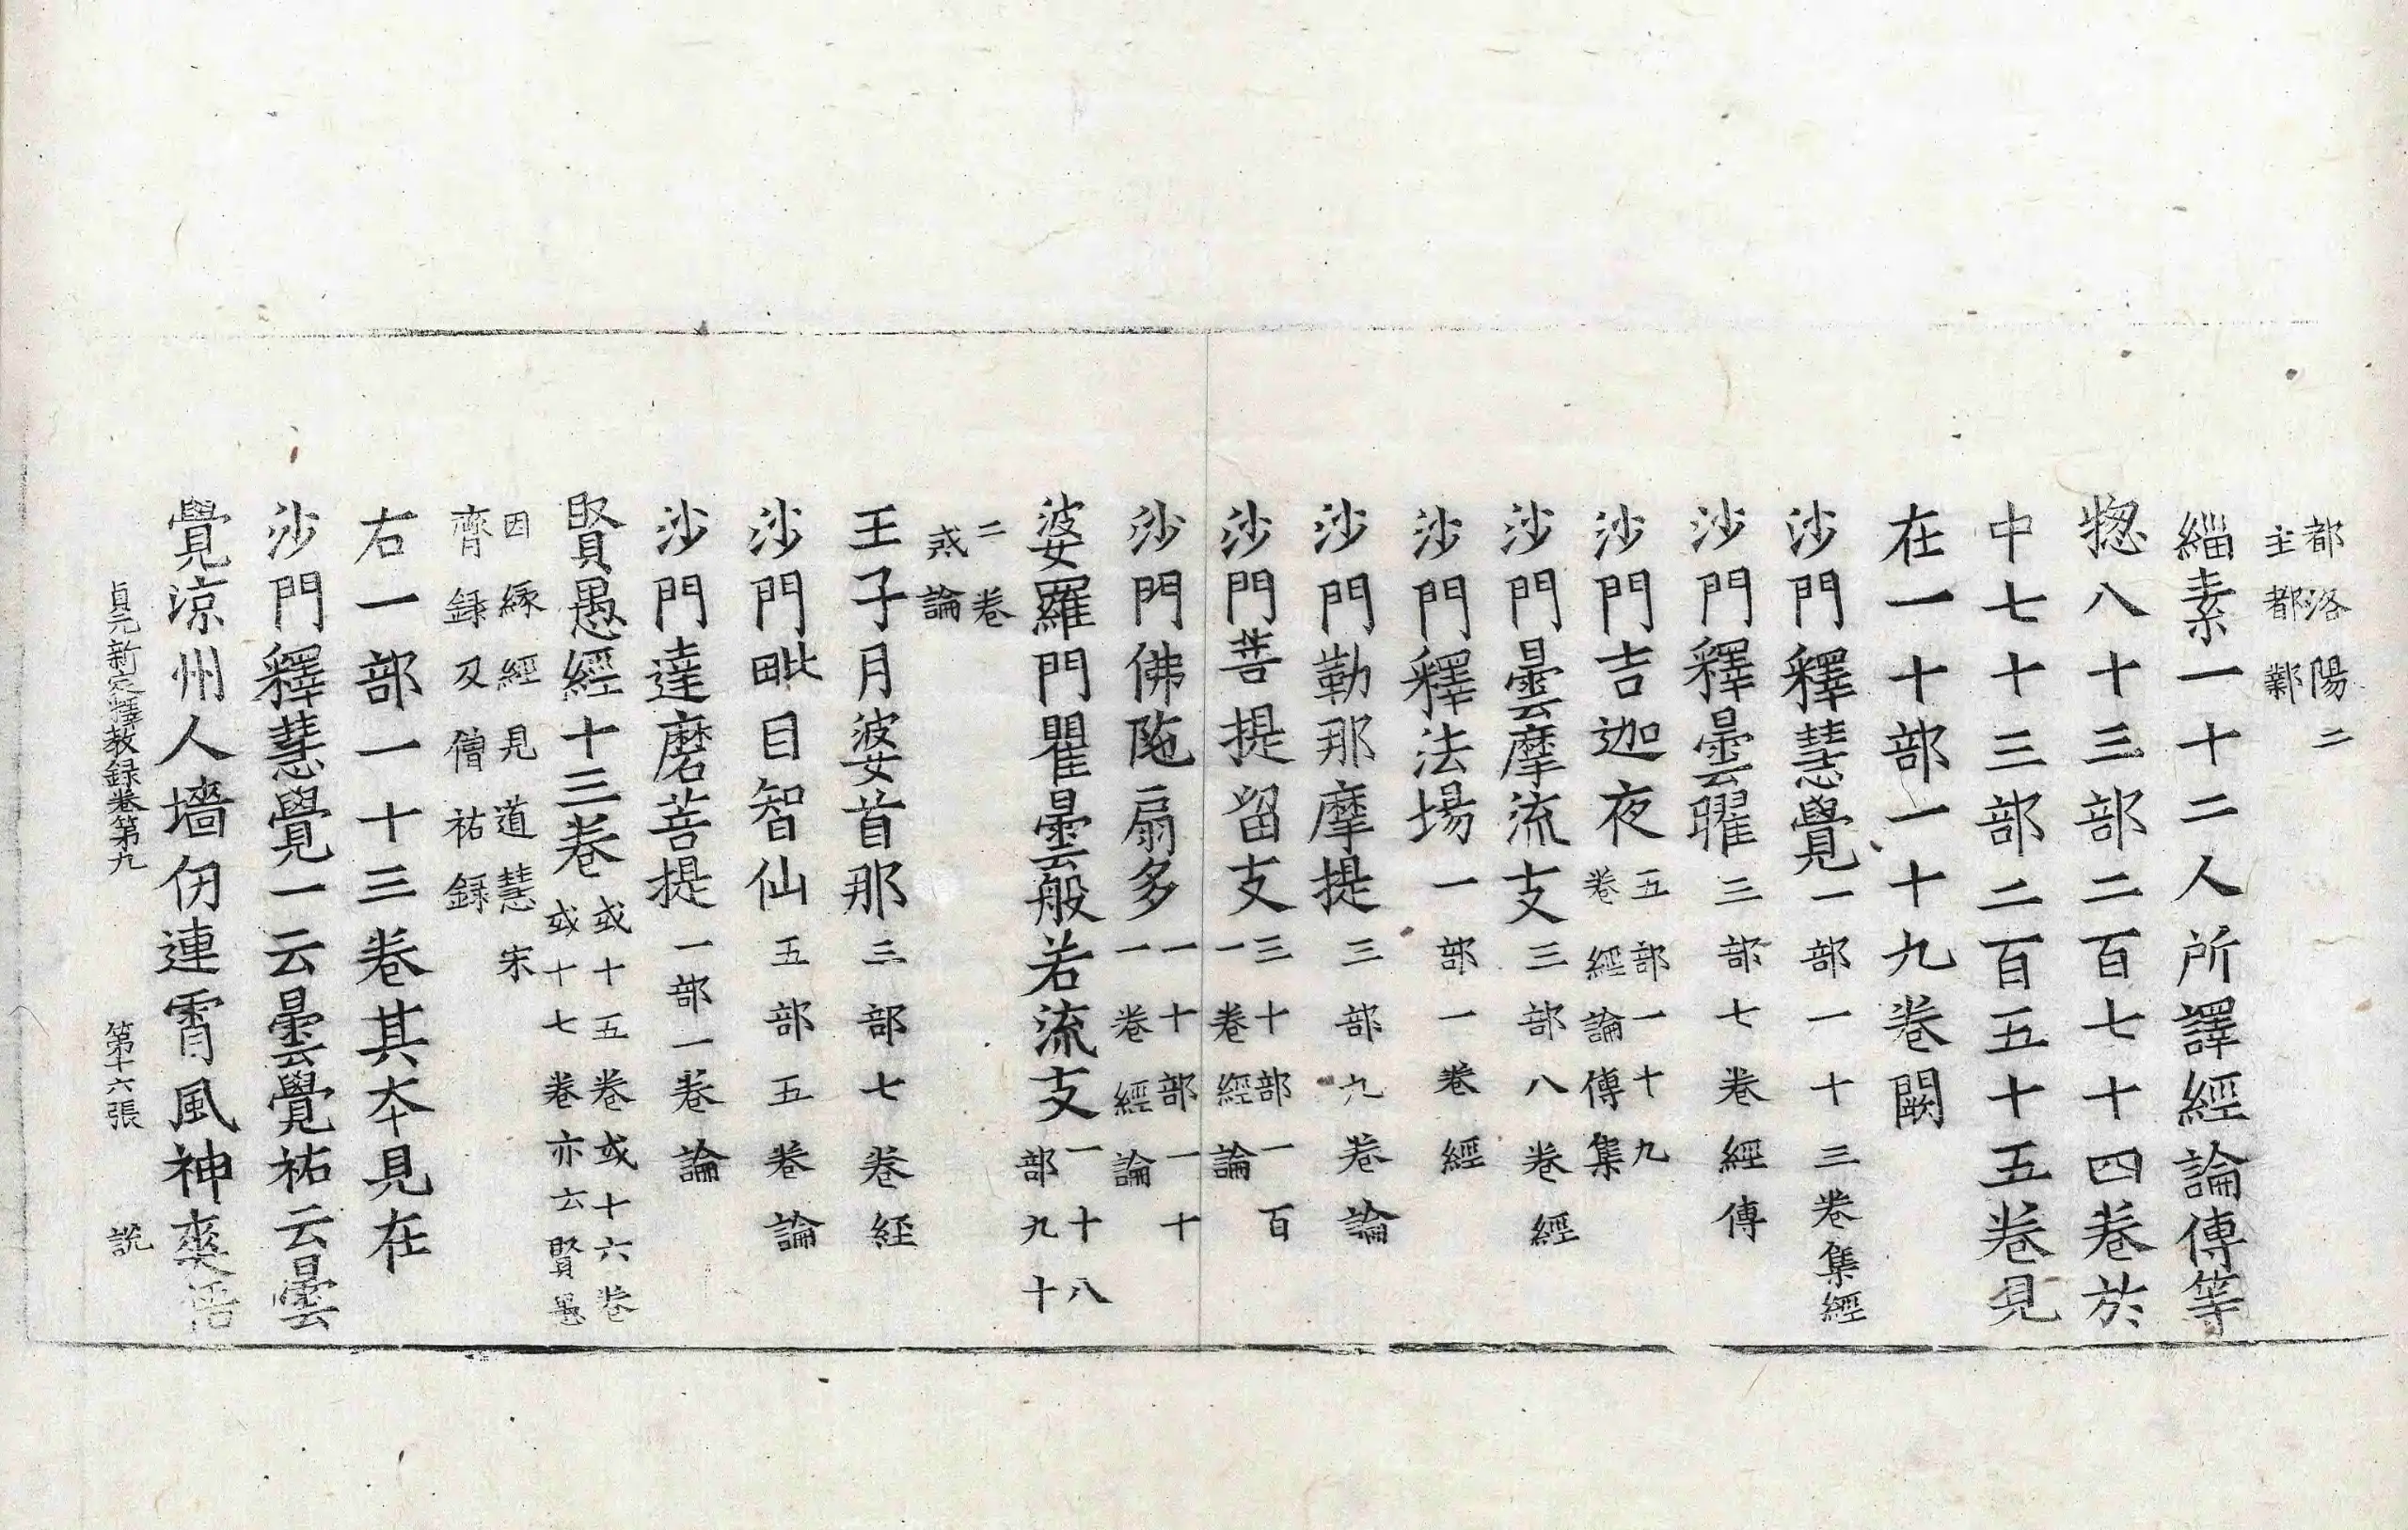 都洛陽二
主都鄴
緇素一十二人所譯經論傳等
揔八十三部二百七十四卷於
中七十三部二百五十五卷見
在一十部一十九卷闕
沙門釋慧覺一部一十三卷集經
沙門釋曇曜三部七卷經傳
沙門吉迦夜五部一十九
卷經論傳集
沙門曇摩流支三部八卷經
沙門釋法場一部一卷經
沙門勒那摩提三部九卷論
沙門菩提留支三十部一百
一卷經論
沙門佛陁扇多一十部一十
一卷經論
婆羅門瞿曇般若流支一十八
部九十
二卷
惑論
王子月婆首那三部七卷経
沙門毗目智仙五部五卷論
沙門達磨菩提一部一卷論
賢愚經十三卷或十五卷或十六卷
或十七卷亦云賢愚
因縁經見道慧宋
齊録及僧祐録
右一部一十三卷其夲見在
沙門釋慧覺一云曇覺祐云曇
覺涼州人墻仞連霄風神爽悟
貞元新定釋教録卷第九 第十六張 說